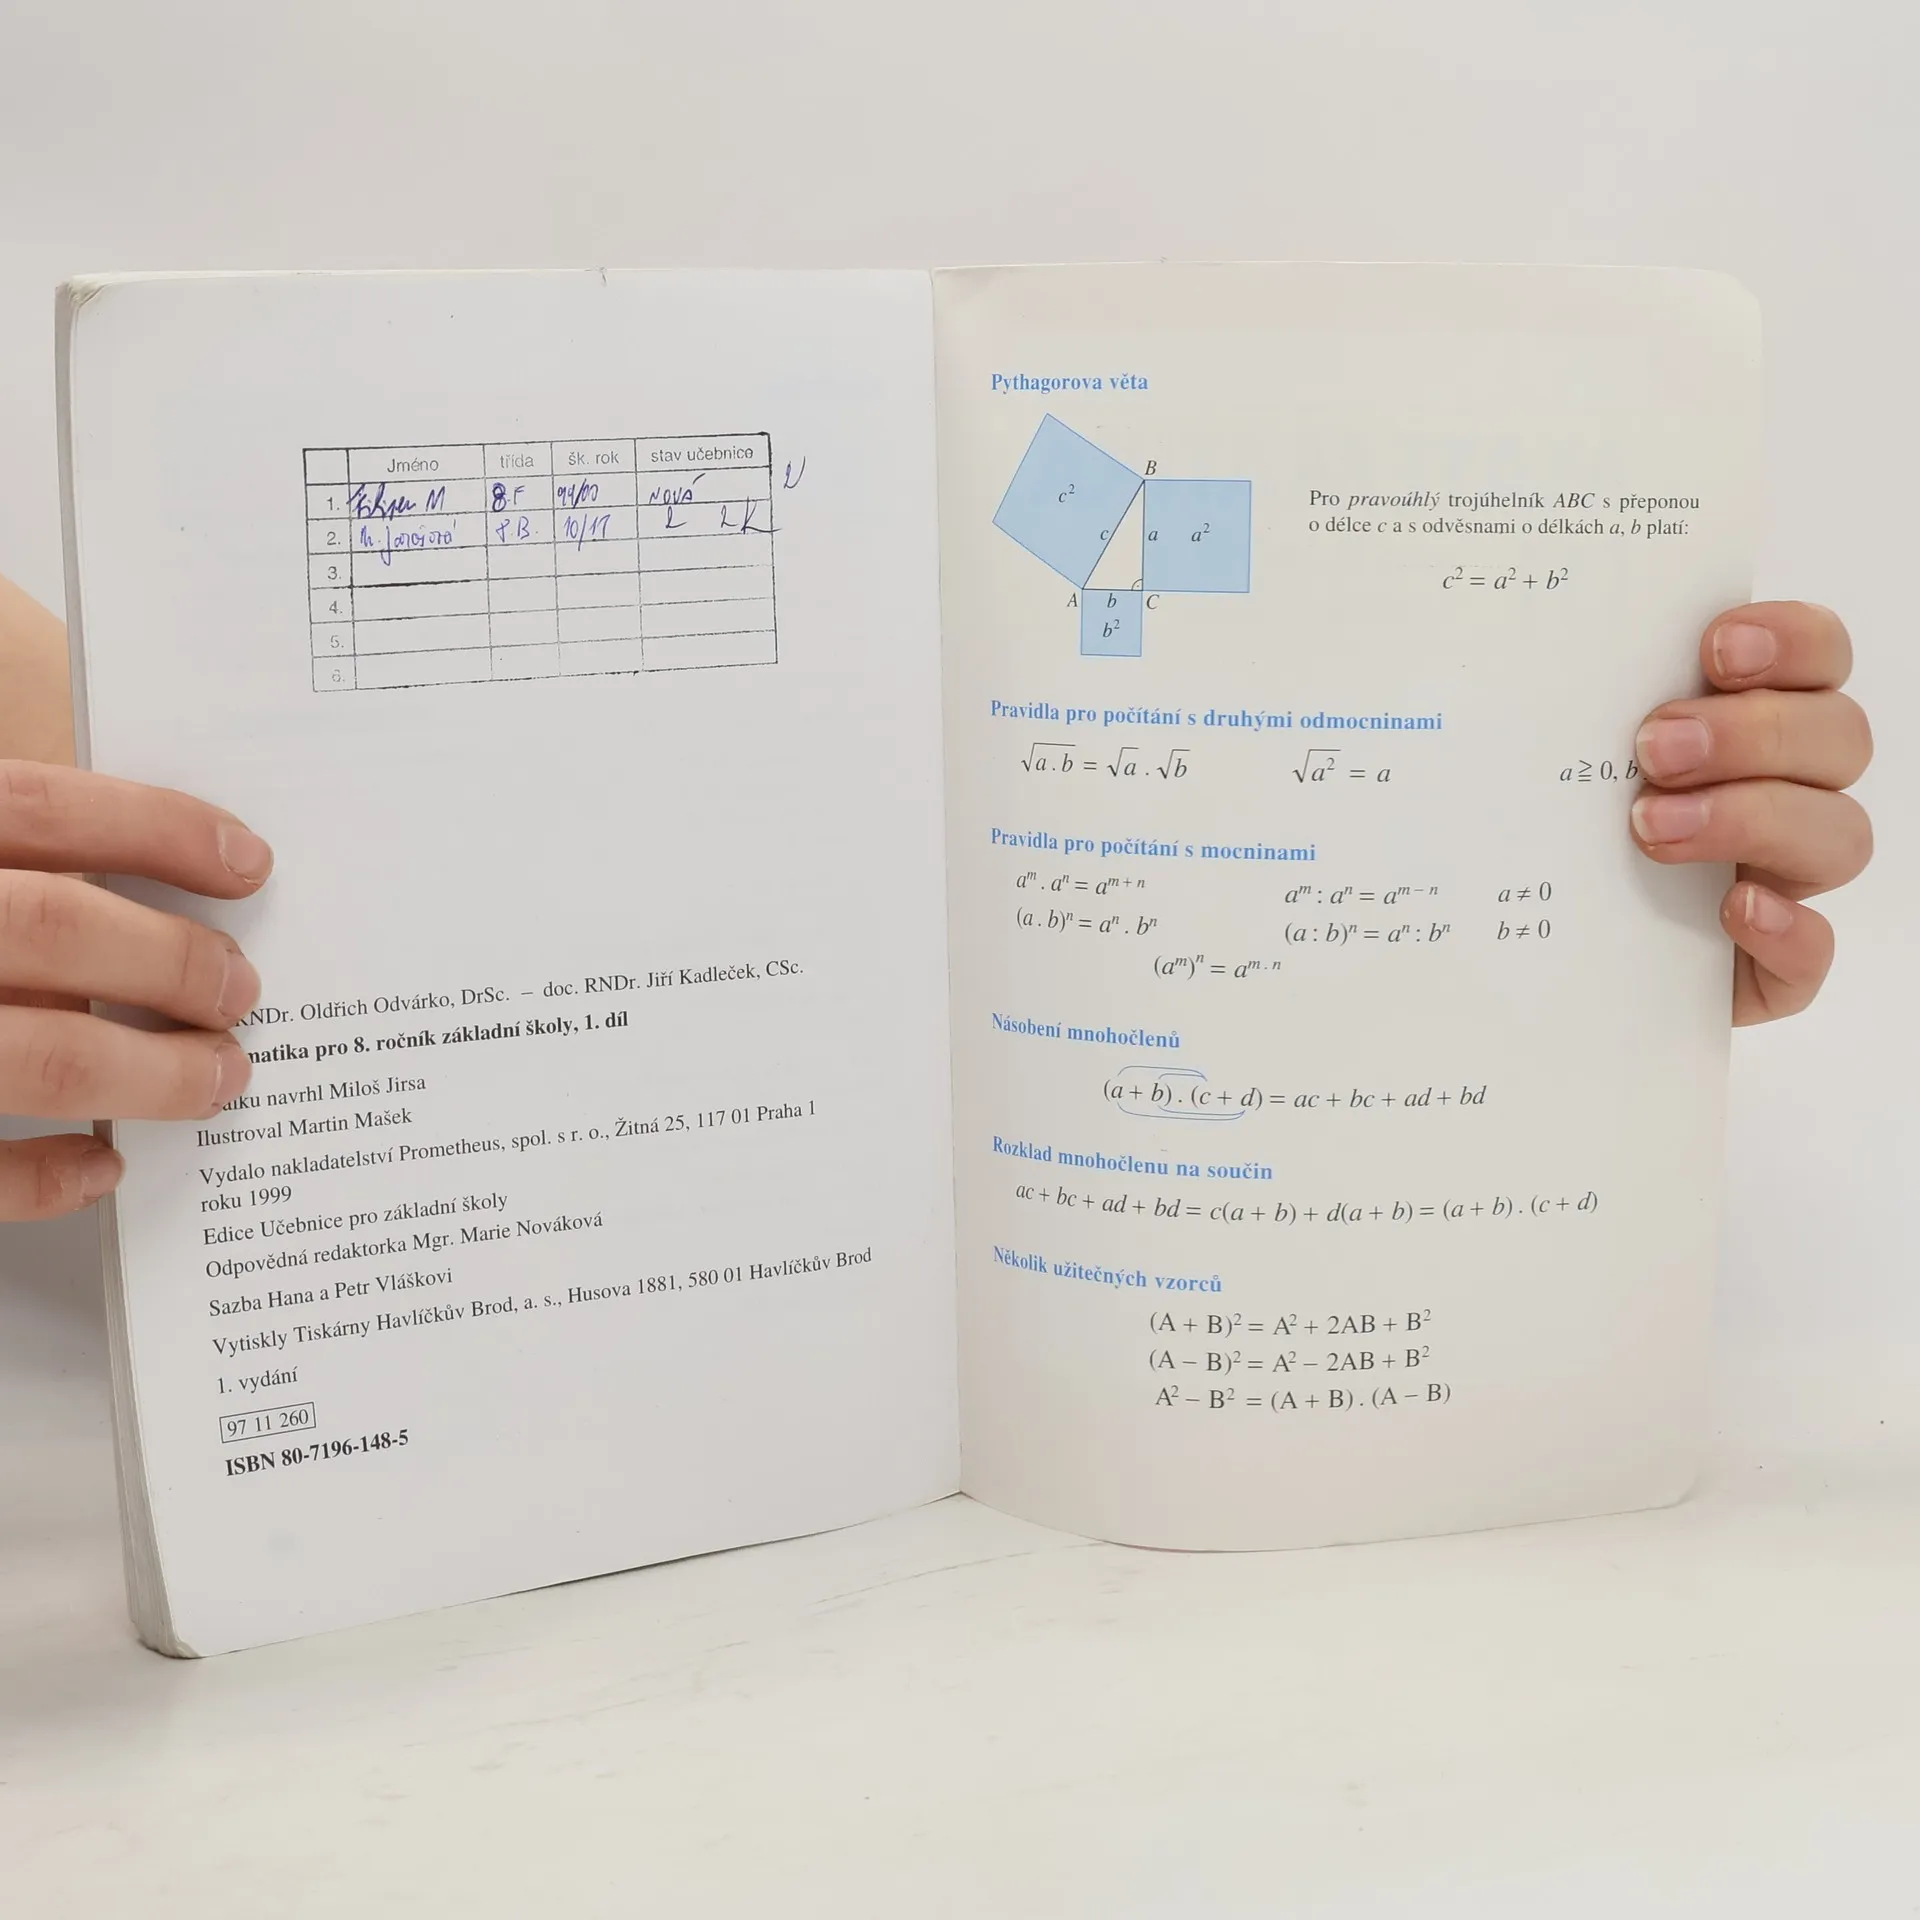 Jméno třída šk. rok stav učebnice
1. M 8.F 99/00 NOVÁ
2. M. 8.B. 10/11 2
3.
4.
5.
6.
RNDr. Oldřich Odvárko, DrSc. – doc. RNDr. Jiří Kadleček, CSc.
matika pro 8. ročník základní školy, 1. díl
álku navrhl Miloš Jirsa
Ilustroval Martin Mašek
Vydalo nakladatelství Prometheus, spol. s r. o., Žitná 25, 117 01 Praha 1
roku 1999
Edice Učebnice pro základní školy
Odpovědná redaktorka Mgr. Marie Nováková
Sazba Hana a Petr Vláškovi
Vytiskly Tiskárny Havlíčkův Brod, a. s., Husova 1881, 580 01 Havlíčkův Brod
1. vydání
97 11 260
ISBN 80-7196-148-5
Pythagorova věta
B
c²
c a a²
A b C
b²
Pro pravoúhlý trojúhelník ABC s přeponou
o délce c a s odvěsnami o délkách a, b platí:
c² = a² + b²
Pravidla pro počítání s druhými odmocninami
√a . b = √a . √b √a² = a a ≧ 0, b
Pravidla pro počítání s mocninami
aᵐ . aⁿ = aᵐ⁺ⁿ aᵐ : aⁿ = aᵐ⁻ⁿ a ≠ 0
(a . b)ⁿ = aⁿ . bⁿ (a : b)ⁿ = aⁿ : bⁿ b ≠ 0
(aᵐ)ⁿ = aᵐ·ⁿ
Násobení mnohočlenů
(a + b) . (c + d) = ac + bc + ad + bd
Rozklad mnohočlenu na součin
ac + bc + ad + bd = c(a + b) + d(a + b) = (a + b) . (c + d)
Několik užitečných vzorců
(A + B)² = A² + 2AB + B²
(A – B)² = A² – 2AB + B²
A² – B² = (A + B) . (A – B)